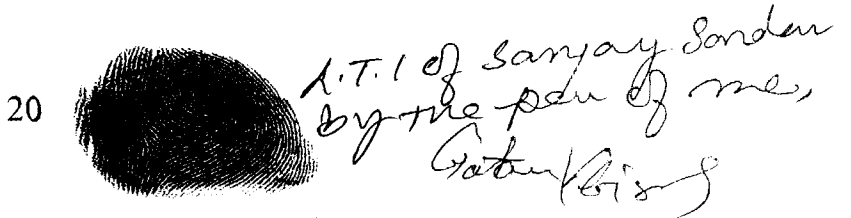 20
L.T.I of Sanjay Sardar
by the pen of me,